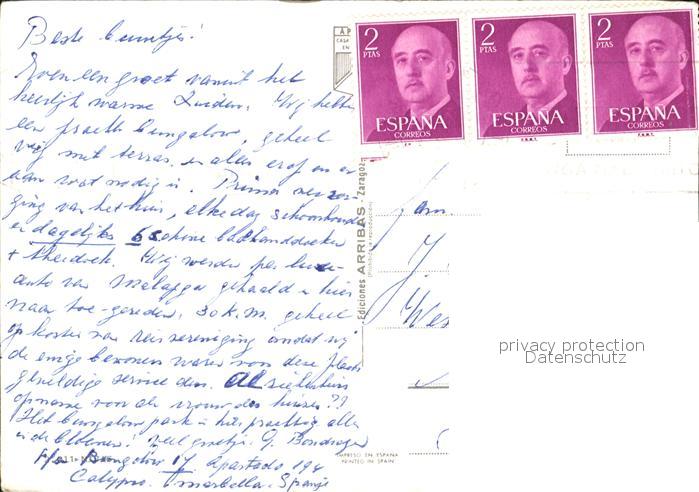 Beste buurtjes!
Even een groet vanuit het
heerlijk warme Zuiden. Wij hebben
een pracht bungalow, geheel
vrij met terras en alles erop en er
aan wat nodig is. Prima verzor-
ging van het huis, elke dag schoonhouden
en dagelijks 6 schone badhanddoeken
+ theedoek. Wij werden per luxe-
auto van Malaga gehaald en hier
naar toe gereden, 30 k.m. geheel
op kosten van reisvereniging omdat wij
de enige bewoners waren voor deze plaats
geweldige service dus.
opname voor de vrouw des huizes??
Het bungalow park is hier prachtig alles
in de bloemen! veel groetjes. G.
p/a Bungalow 17. Apartado 194
Calypso. Marbella. Spanje
Ediciones ARRIBAS - Zaragoza
(Prohibida la reproducción)
IMPRESO EN ESPAÑA
PRINTED IN SPAIN
2 PTAS
ESPAÑA
CORREOS
F.N.M.T.
2 PTAS
ESPAÑA
CORREOS
F.N.M.T.
2 PTAS
ESPAÑA
CORREOS
F.N.M.T.
Fam.
privacy protection
Datenschutz